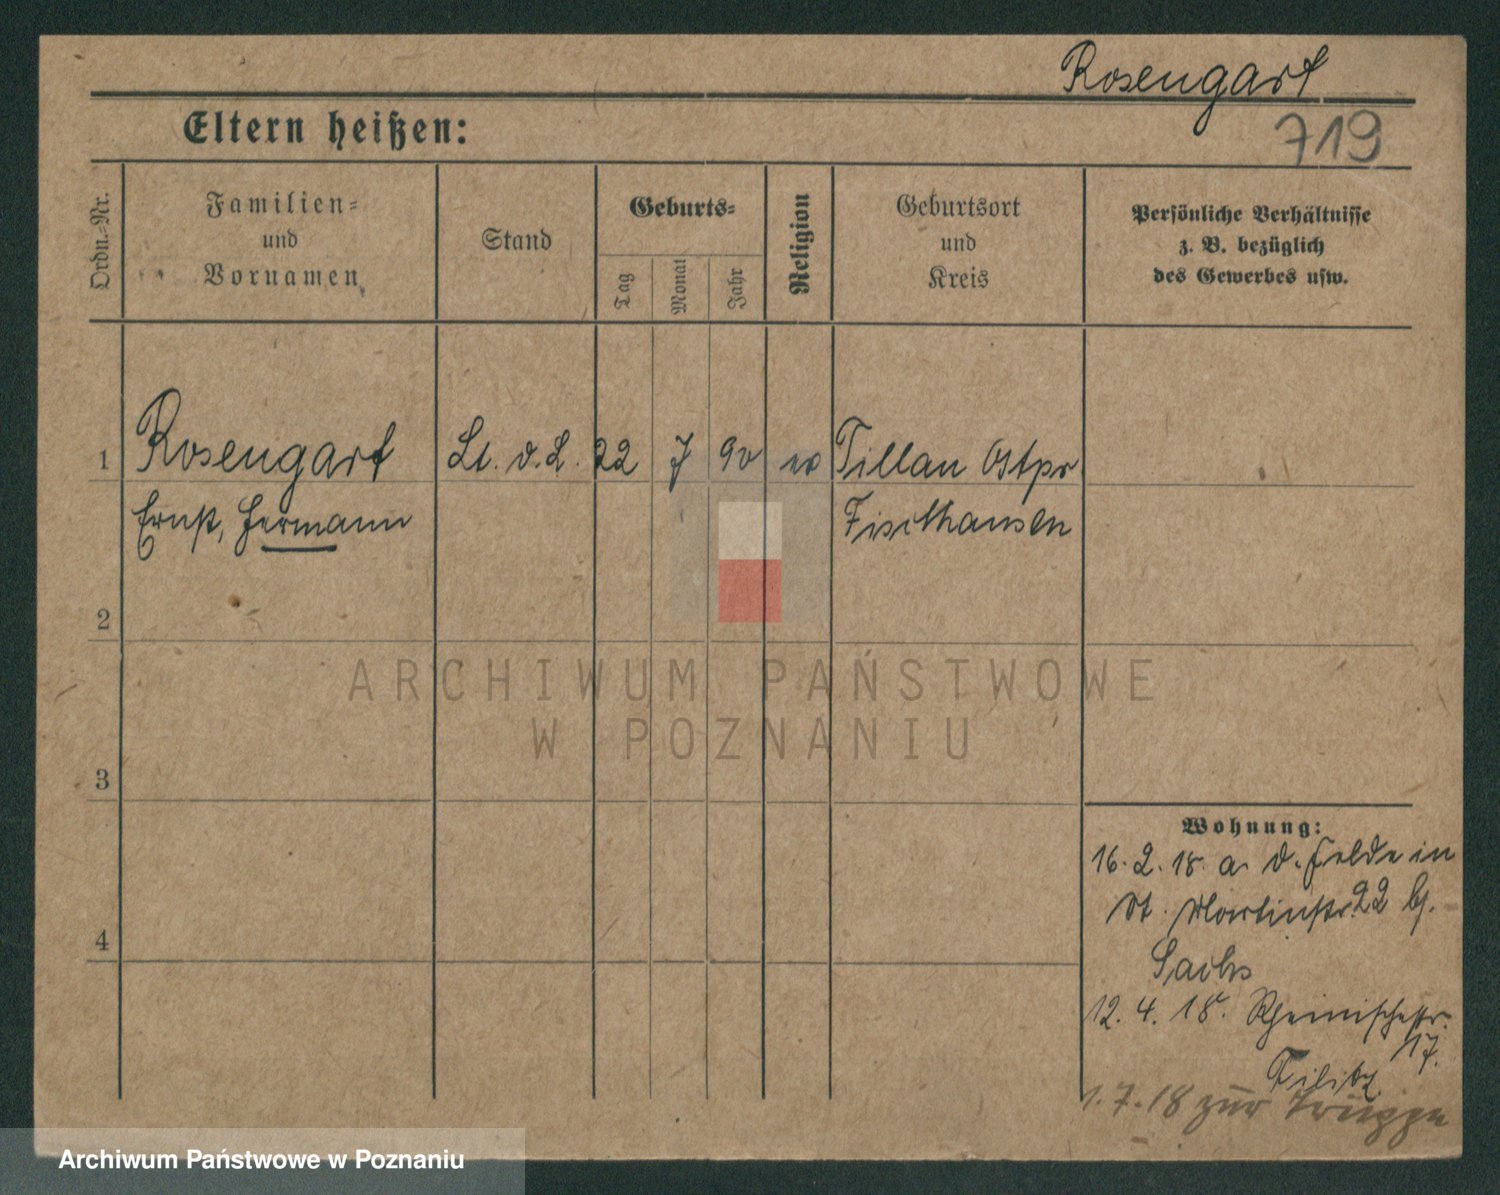 Rosengart
719
Eltern heißen:
Ordn.-Nr.
Familien-
und
Vornamen
Stand
Geburts-
Tag
Monat
Jahr
Religion
Geburtsort
und
Kreis
Persönliche Verhältnisse
z. B. bezüglich
des Gewerbes usw.
1 Rosengart Lt. d. L. 22 7 90 ev Tillau Ostpr
Ernst, Hermann Fischhausen
2
3
4
Wohnung:
16. 2. 18. a. d. Felde in
St. Martinstr. 22 b/.
Sachs
12. 4. 18. Rheinischestr.
17.
1. 7. 18 zur Truppe
ARCHIWUM PAŃSTWOWE
W POZNANIU
Archiwum Państwowe w Poznaniu